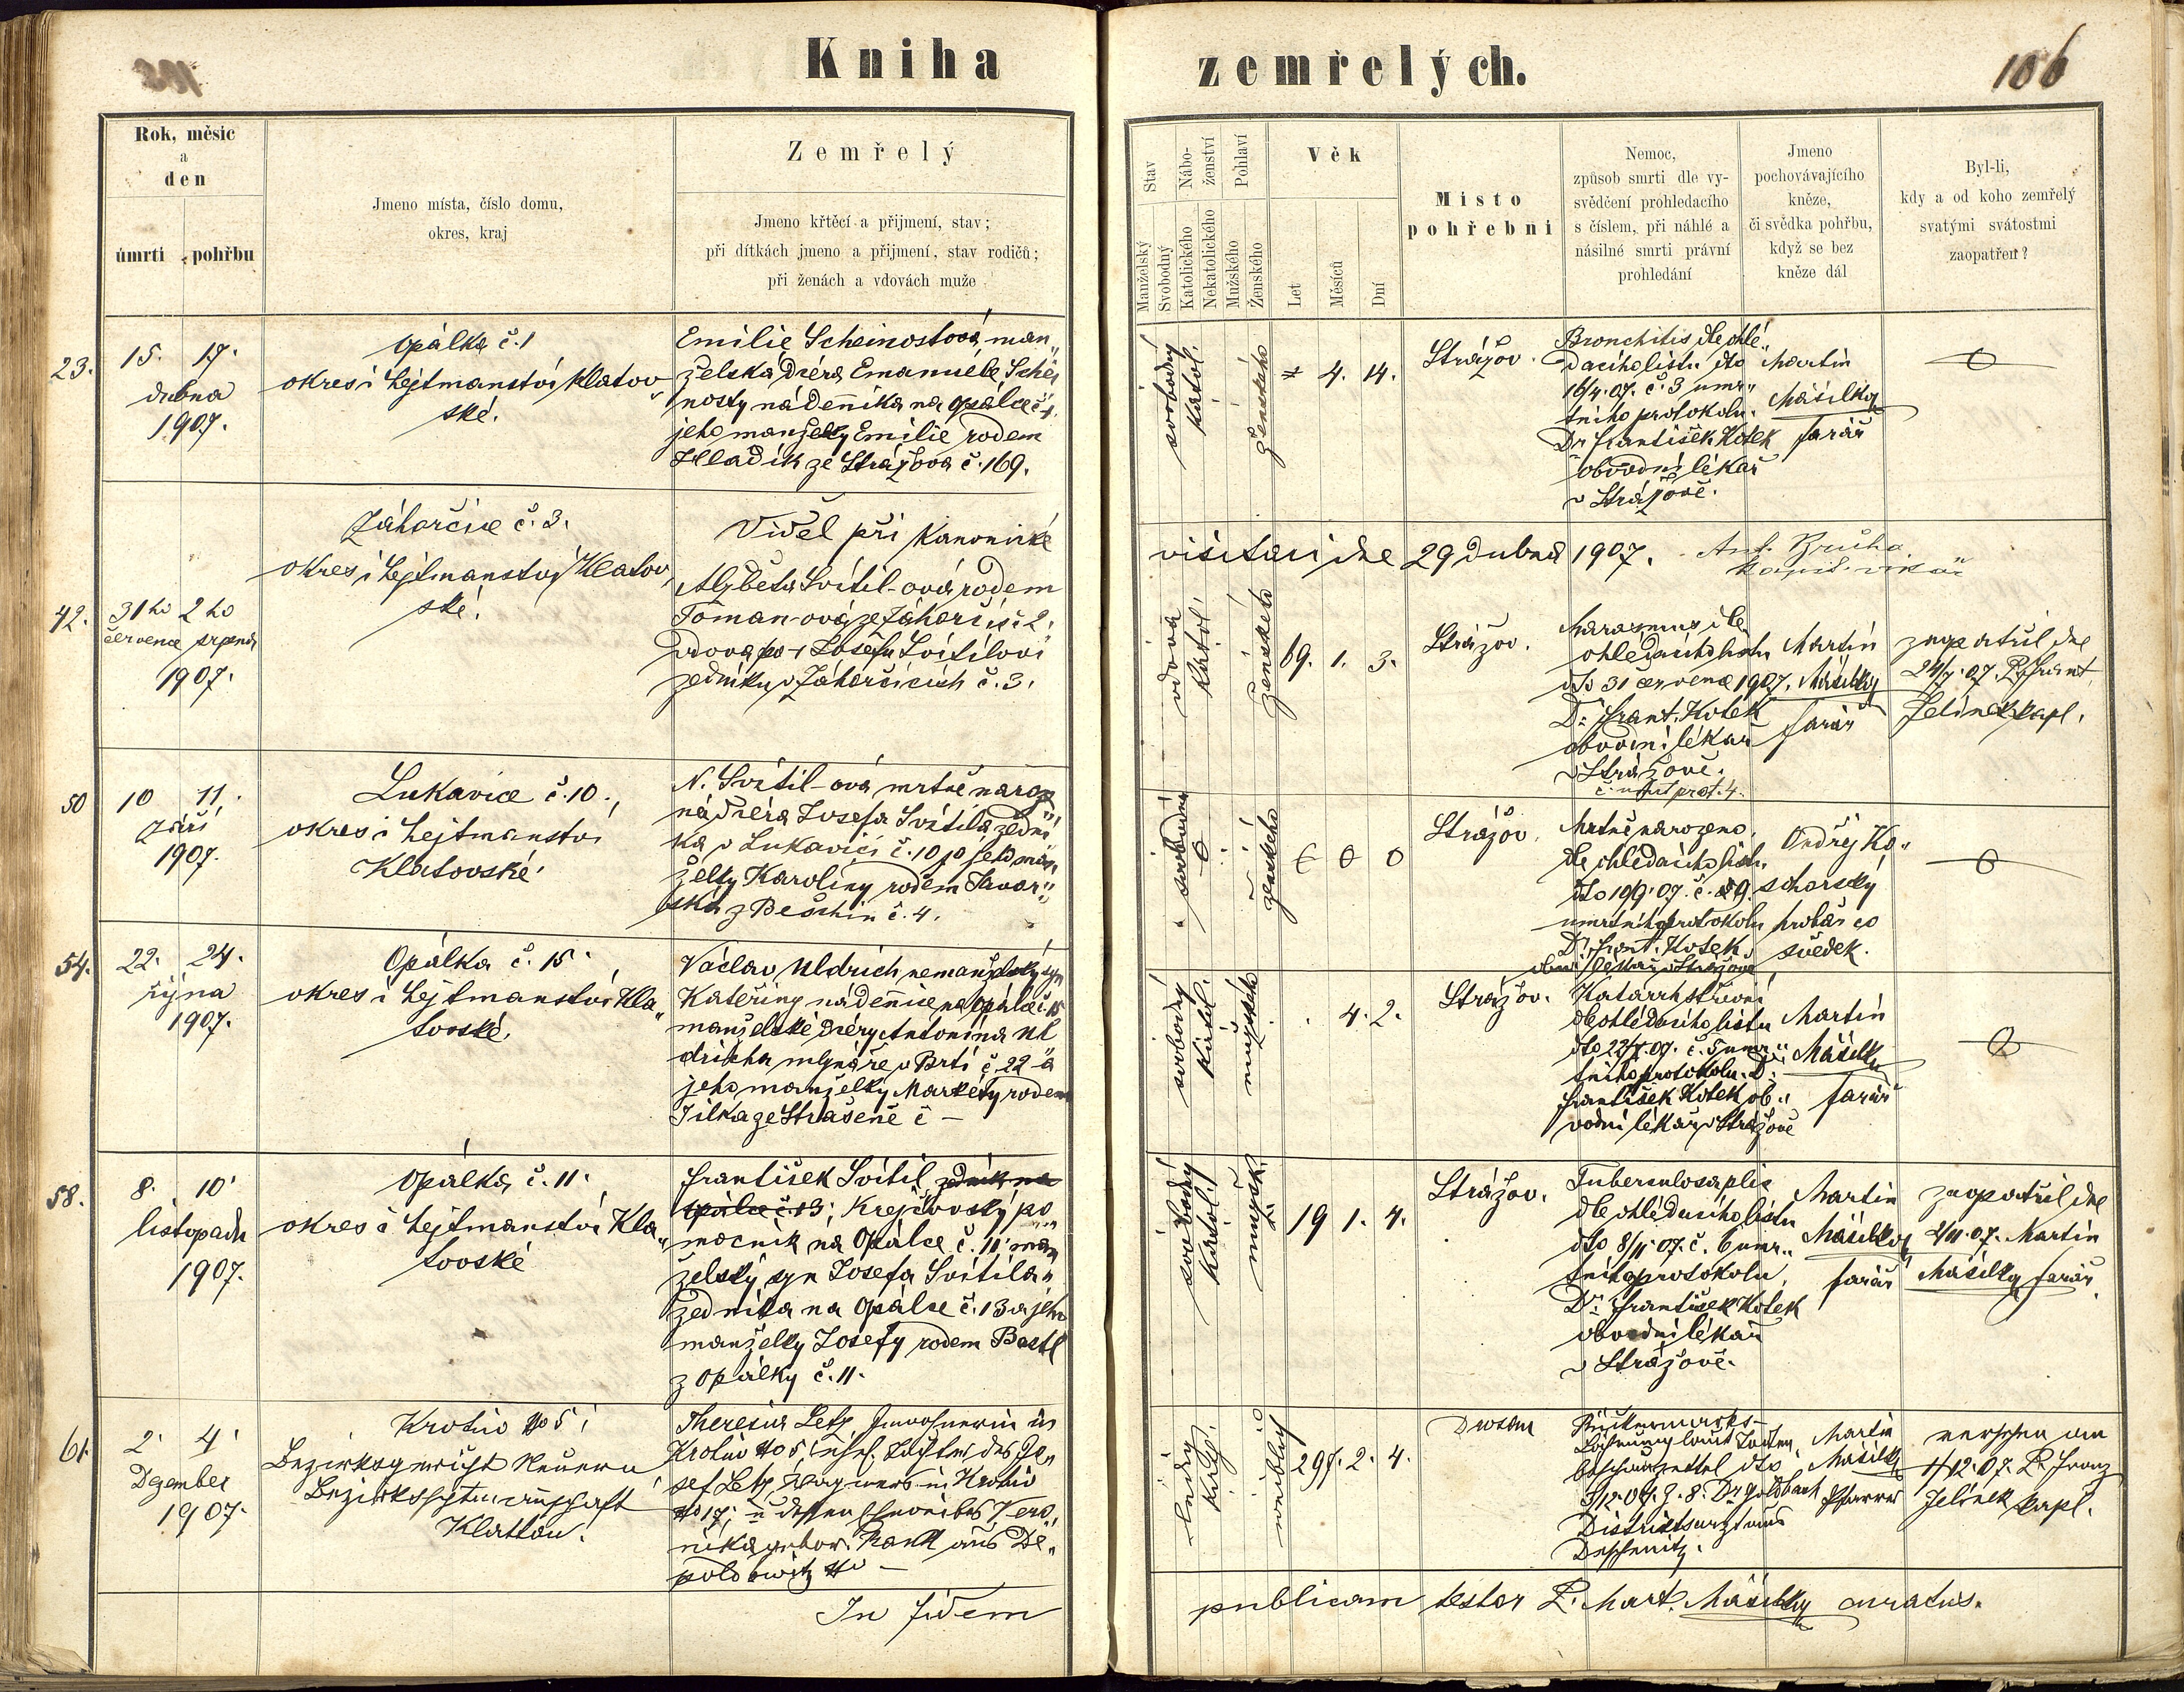 Kniha zemřelých.
106
Rok, měsíc
a
den
úmrtí
pohřbu
Jmeno místa, číslo domu,
okres, kraj
Zemřelý
Jmeno křtěcí a přijmení, stav;
při dítkách jmeno a přijmení, stav rodičů;
při ženách a vdovách muže
Stav
Manželský
Svobodný
Nábo-
ženství
Katolického
Nekatolického
Pohlaví
Mužského
Ženského
Věk
Let
Měsíců
Dní
Místo
pohřební
Nemoc,
způsob smrti dle vy-
svědčení prohledacího
s číslem, při náhlé a
násilné smrti právní
prohledání
Jmeno
pochovávajícího
kněze,
či svědka pohřbu,
když se bez
kněze dál
Byl-li,
kdy a od koho zemřelý
svatými svátostmi
zaopatřen?
23.
15. 17.
dubna
1907.
Opálka č. 1
okres i hejtmanství Klatov„
ské.
Emilie Scheinostová, man„
želská dcéra Emanuele Schei
nosty nádenníka na Opálce č. 1.
jeho manželky Emilie rodem
Hladík ze Strážova č. 169.
svobodný
katol.
ženského
4. 14.
Strážov.
Bronchitis dle ohlé„
dacího listu dto
16/4.07. č. 3 úmr„
tního protokolu.
Dr František Kotek
obvodní lékař
v Strážově.
Martin
Mášilka
farář
42.
31ho 2ho
července srpna
1907.
Záhorčice č. 3.
okres i hejtmanství Klatov„
ské.
Viděl při kanonické
visitaci dne 29 dubna 1907.
Alžběta Svítil-ová rodem
Toman-ová ze Záhorčic č. 2.
vdova po + Josefu Svítilovi
zedníku v Záhorčicích č. 3.
vdova
katol.
ženského
69. 1. 3.
Strážov.
Marasmus dle
ohledacího listu
dto 31 července 1907.
Dr Frant. Kotek
obvodní lékař
v Strážově.
č. úmrt prot. 4.
Martin
Mášilka
farář
zaopatřil dne
24/7.07. P. Frant
Jelínek kapl.
50
10 11.
září
1907.
Lukavice č. 10.,
okres i hejtmanství
Klatovské.
N. Svítil-ová mrtvě naroze
ná dcéra Josefa Svítila zední
ka v Lukavici č. 10 jeho man„
želky Karoliny rodem Tavor„
ská z Běšin č. 4.
svobodná
0
ženského
0 0 0
Strážov.
Mrtvě narozeno.
dle ohledacího listu
dto 10/9.07. č. 9.
úmrtního protokolu
Dr Frant. Kotek
obvod. lékař v Strážově
Ondřej Ko„
schorský
hrobař co
svědek.
0
54.
22. 24.
října
1907.
Opálka č. 15.
okres i hejtmanství Kla„
tovské.
Václav Uldrich nemanželský syn
Kateřiny nádennice na Opálce č. 15
manželské dcéry Antonína Ul
dricha mlynáře v Brtí č. 22 a
jeho manželky Markéty rodem
Jilka ze Strašene č –
svobodný
katol.
mužského
4. 2.
Strážov.
Katarrh střevní
dle ohlédacího listu
dto 22/X.07. č. 5 úmr„
tního protokolu. Dr
František Kotek ob„
vodní lékař v Strážově
Martin
Mášilka
farář
0
58.
8. 10.
listopadu
1907.
Opálka č. 11.
okres i hejtmanství Kla„
tovské
František Svítil, zedník na
Opálce č. 13; Krejčovský po„
mocník na Opálce č. 11; man
želský syn Josefa Svítila„
zedníka na Opálce č. 13 a jeho
manželky Josefy rodem Bastl
z Opálky č. 11.
svobodný
katol.
mužsk.
19 1. 4.
Strážov.
Tuberculosa plic
dle ohlédacího listu
dto 8/11.07. č. 6 úmr„
tního protokolu.
Dr František Kotek
obvodní lékař
v Strážově.
Martin
Mášilka
farář
zaopatřil dne
2/11.07. Martin
Mášilka farář.
61.
2. 4.
Dezember
1907.
Krotiv No 5;
Bezirksgericht Neuern
Bezirkshptmannschaft
Klattau.
Theresia Letz, Inwohnerin in
Krotiv No 5, ehel. Tochter des Jo„
sef Letz, Wagners in Krotiv
No 17; u dessen Eheweibes Vero„
nika gebor. Rank aus De„
polbowitz No –
ledig
kath.
weiblich
29. 2. 4.
Drosau
Rückenmarks-
lähmung laut Todten„
beschauzettel dto
3/12.07. Z. 8. Dr Goldbach
Districtsarzt aus
Depschenitz.
Martin
Mášilka
Pfarrer
versehen am
1/12.07. P. Franz
Jelínek kapl.
In fidem
publicam testor P. Mart. Mášilka curatus.